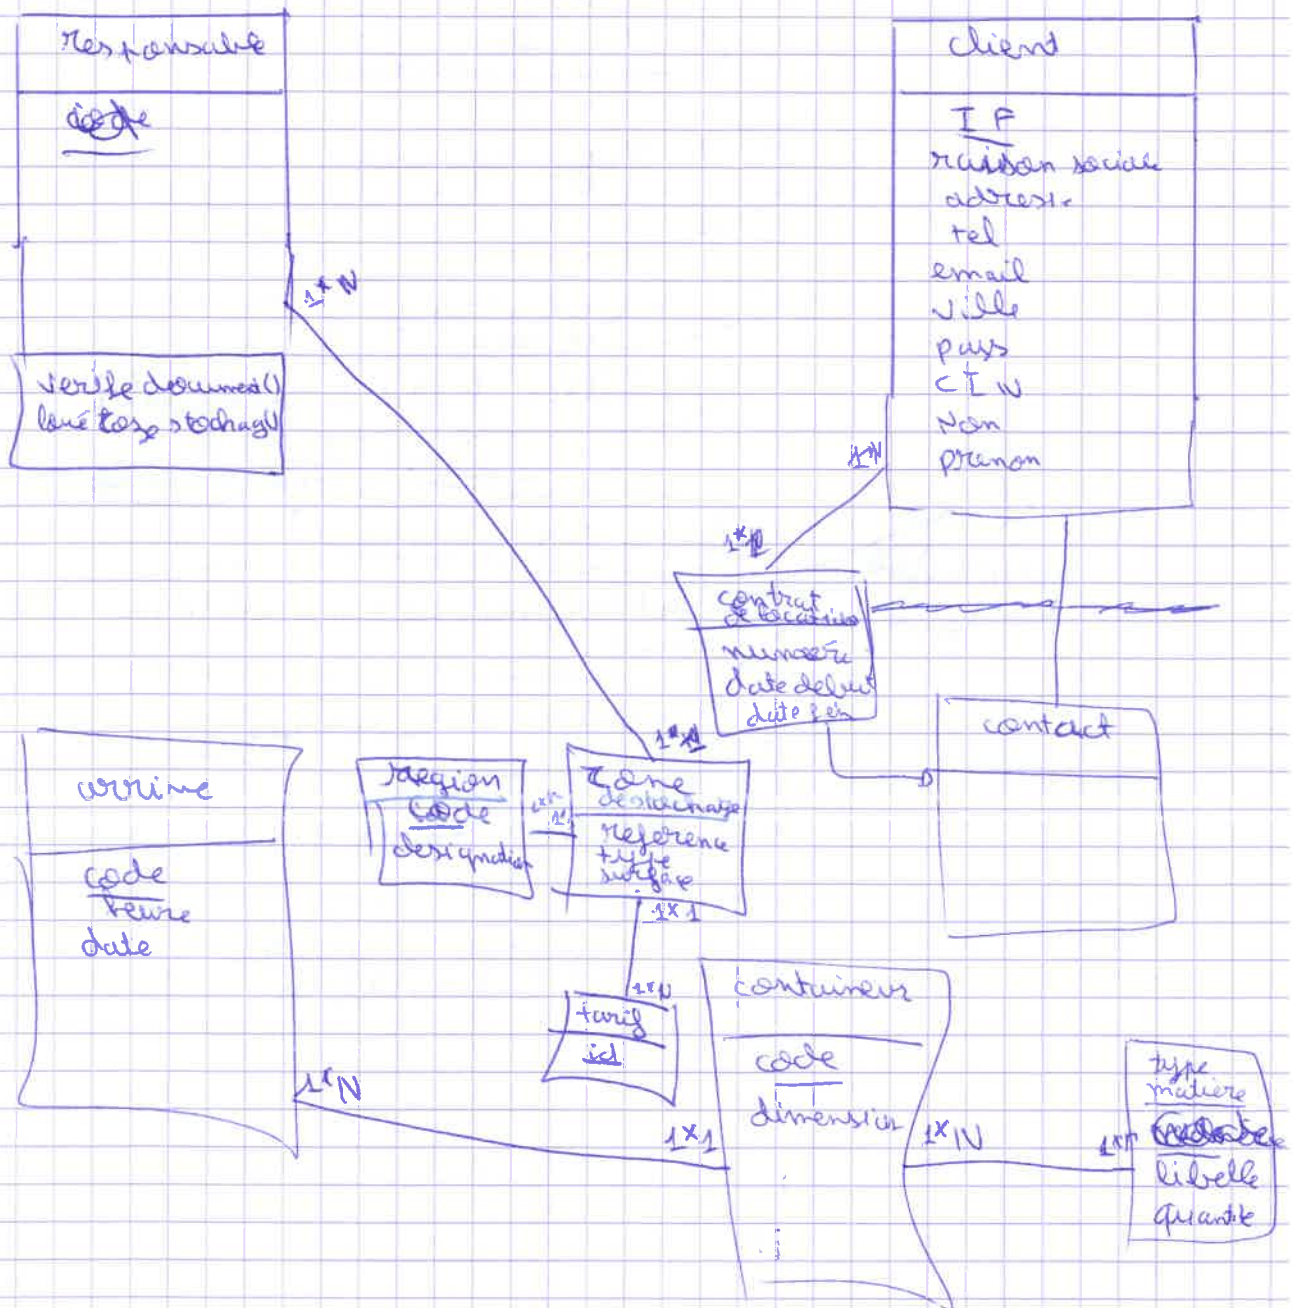 responsable
code
1*N
verife document()
stockag()
client
IF
raison sociale
adresse
tel
email
ville
pays
CIN
Nom
prenom
1*N
1*1
contrat
de location
numero
date debut
date fin
contact
arrive
code
heure
date
1*N
region
code
designation
1*1
zone
destockage
reference
type
surface
1*1
1*N
tarif
id
containeur
code
dimension
1*1
1*N
type
matiere
libelle
quantite